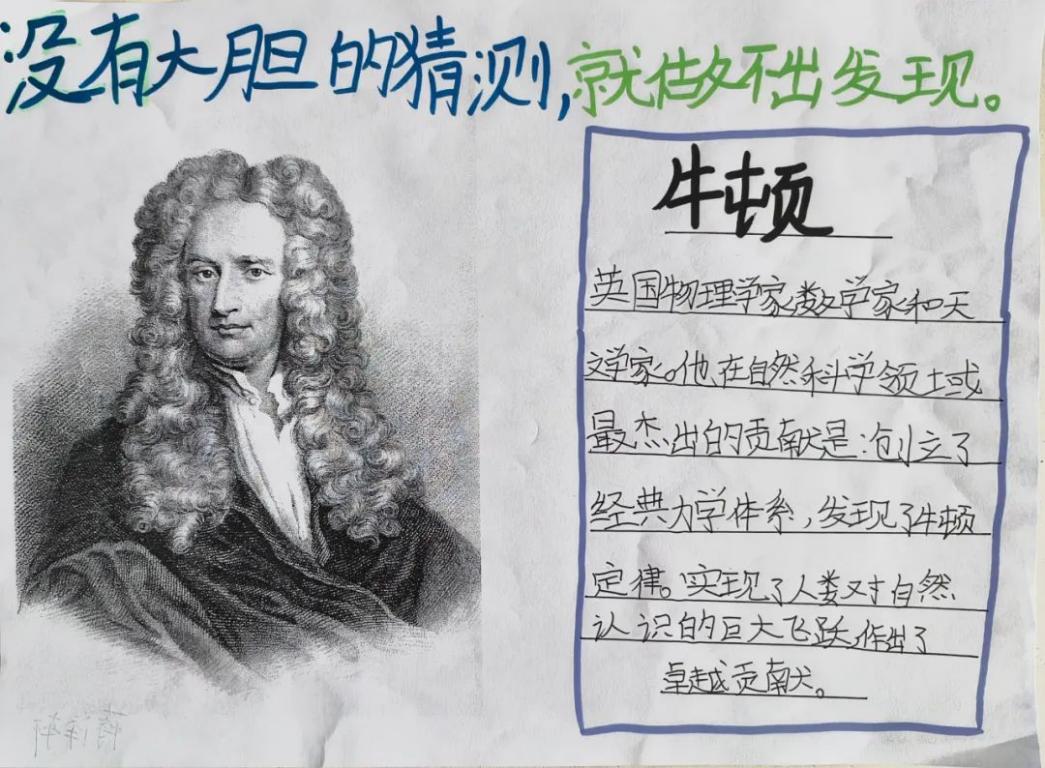 没有大胆的猜测,就做不出发现。
牛顿
英国物理学家数学家和天
文学家。他在自然科学领域
最杰出的贡献是:创立了
经典力学体系,发现了牛顿
定律。实现了人类对自然
认识的巨大飞跃,作出了
卓越贡献。